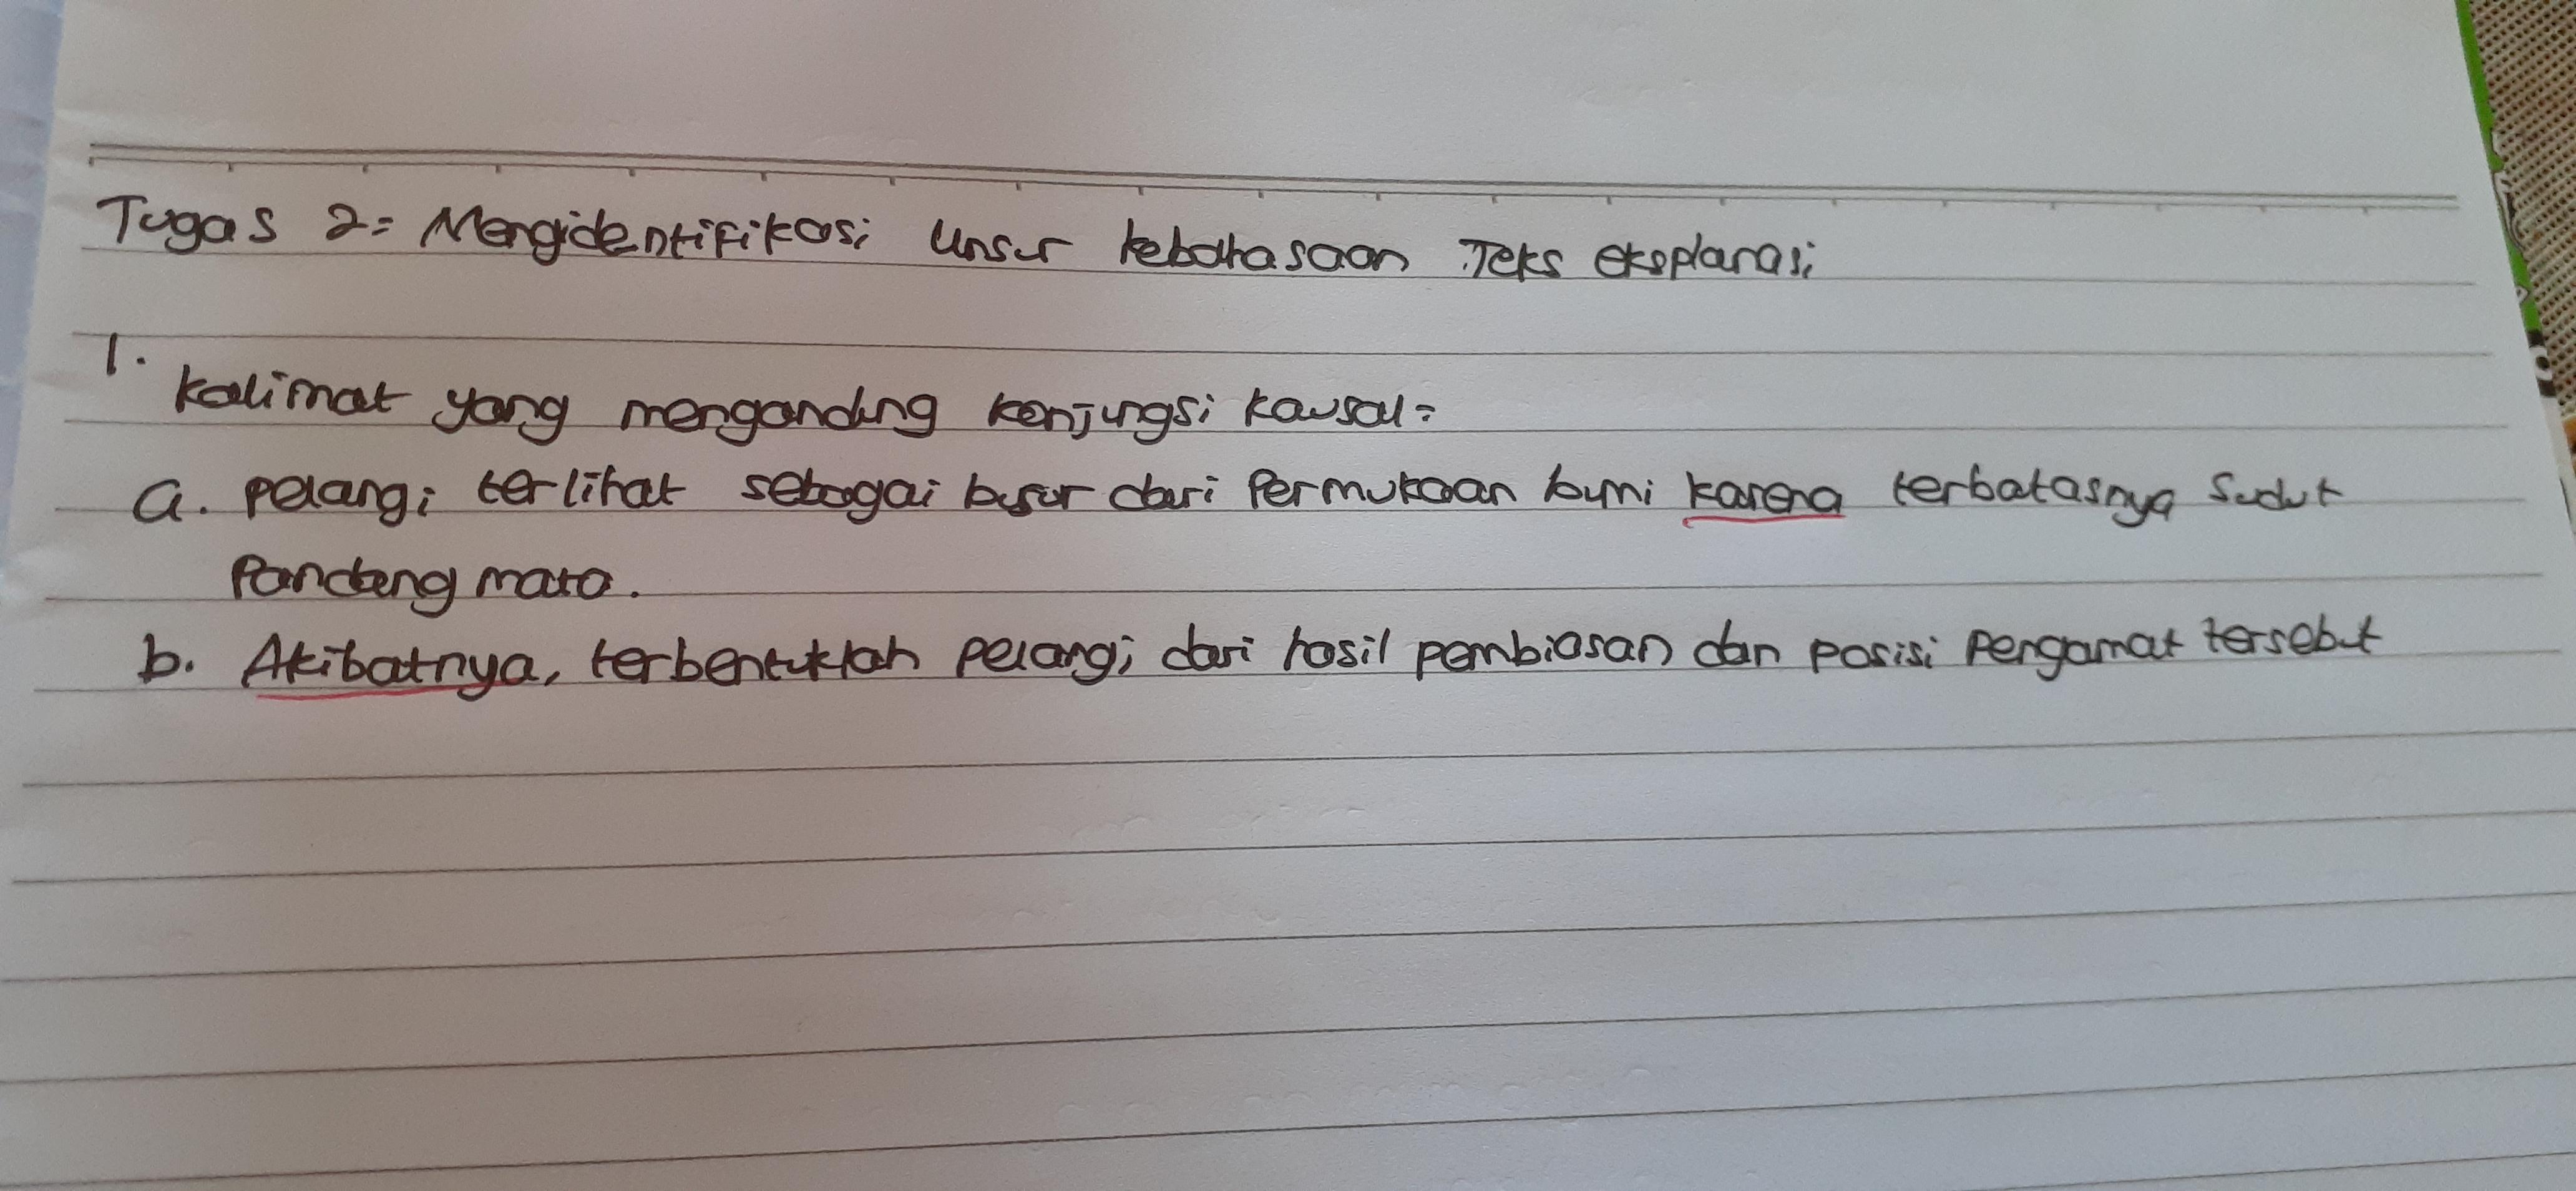 Tugas 2: Mengidentifikasi Unsur kebahasaan Teks eksplanasi
1.
Kalimat yang mengandung konjungsi kausal:
a. pelangi terlihat sebagai busur dari Permukaan bumi karena terbatasnya Sudut
Pandang mata.
b. Akibatnya, terbentuklah pelangi dari hasil pembiasan dan posisi Pengamat tersebut